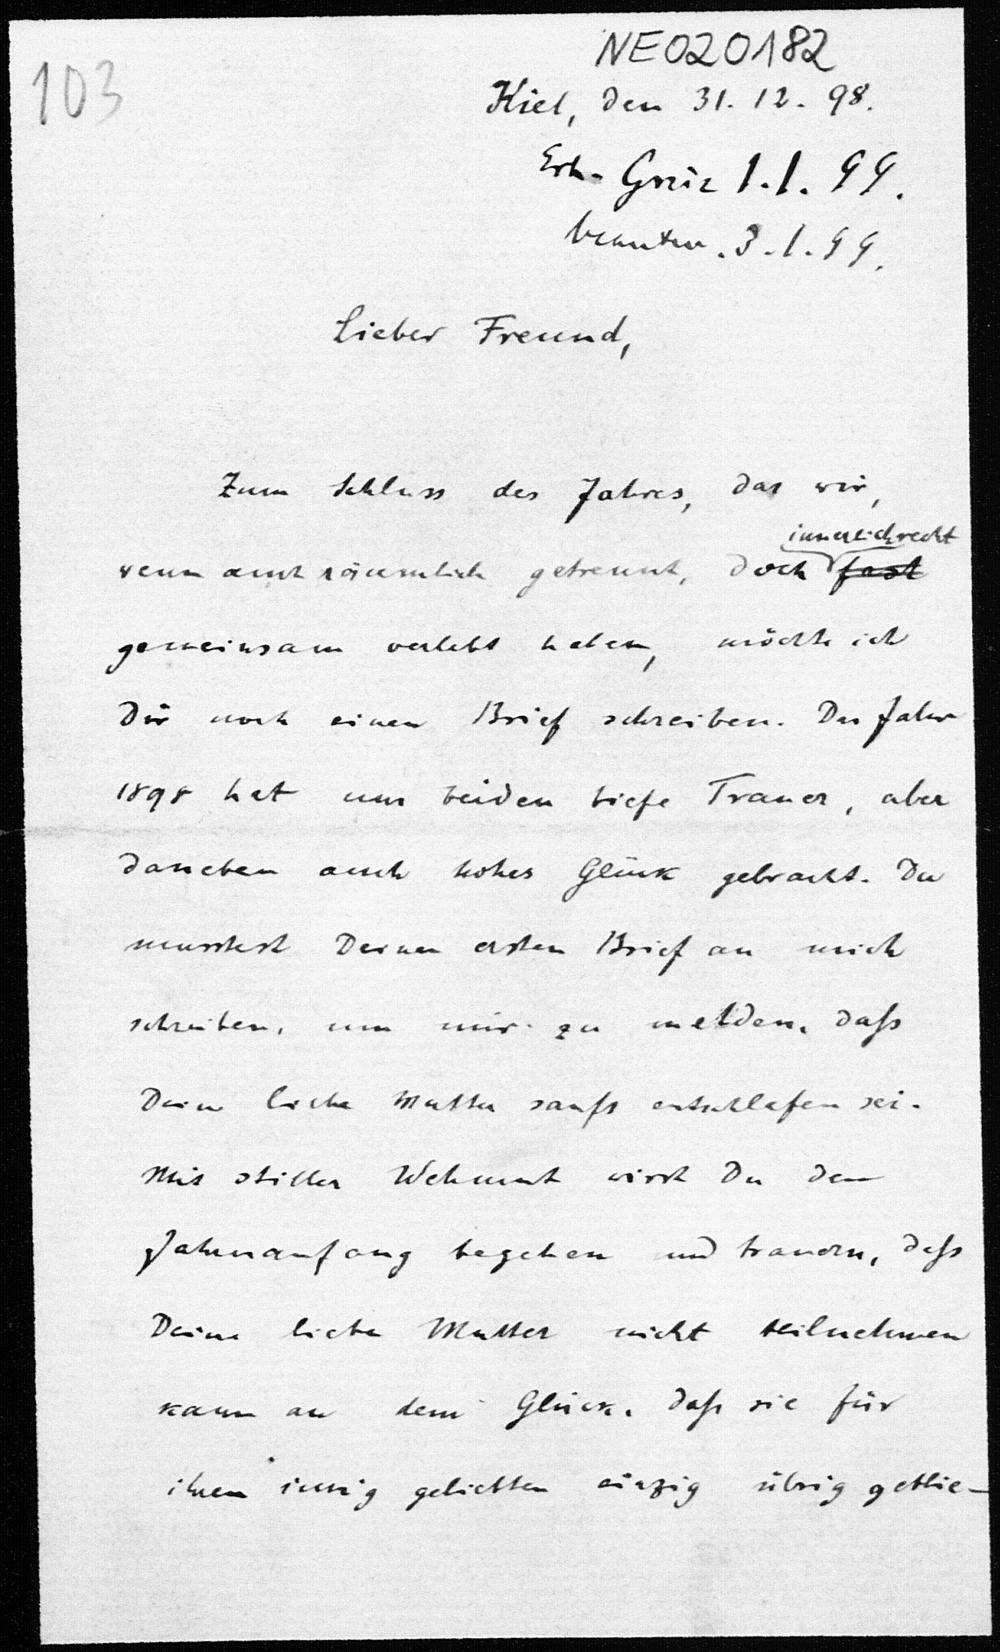 NE020182
103
Kiel, den 31. 12. 98.
Erh. Greiz 1. 1. 99.
beantw. 3. 1. 99.
Lieber Freund,
Zum Schluss des Jahres, das wir,
innerlich recht
wenn auch räumlich getrennt, doch fast
gemeinsam verlebt haben, möchte ich
Dir noch einen Brief schreiben. Das Jahr
1898 hat uns beiden tiefe Trauer, aber
daneben auch hohes Glück gebracht. Du
musstest Deinen ersten Brief an mich
schreiben, um mir zu melden, daß
Deine liebe Mutter sanft entschlafen sei.
Mit stiller Wehmut wirst Du den
Jahresanfang begehen und trauern, daß
Deine liebe Mutter nicht teilnehmen
kann an dem Glück, daß sie für
ihren innig geliebten einzig übrig geblie-